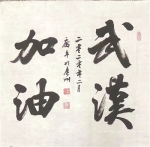 武漢
加油
二零二零年二月